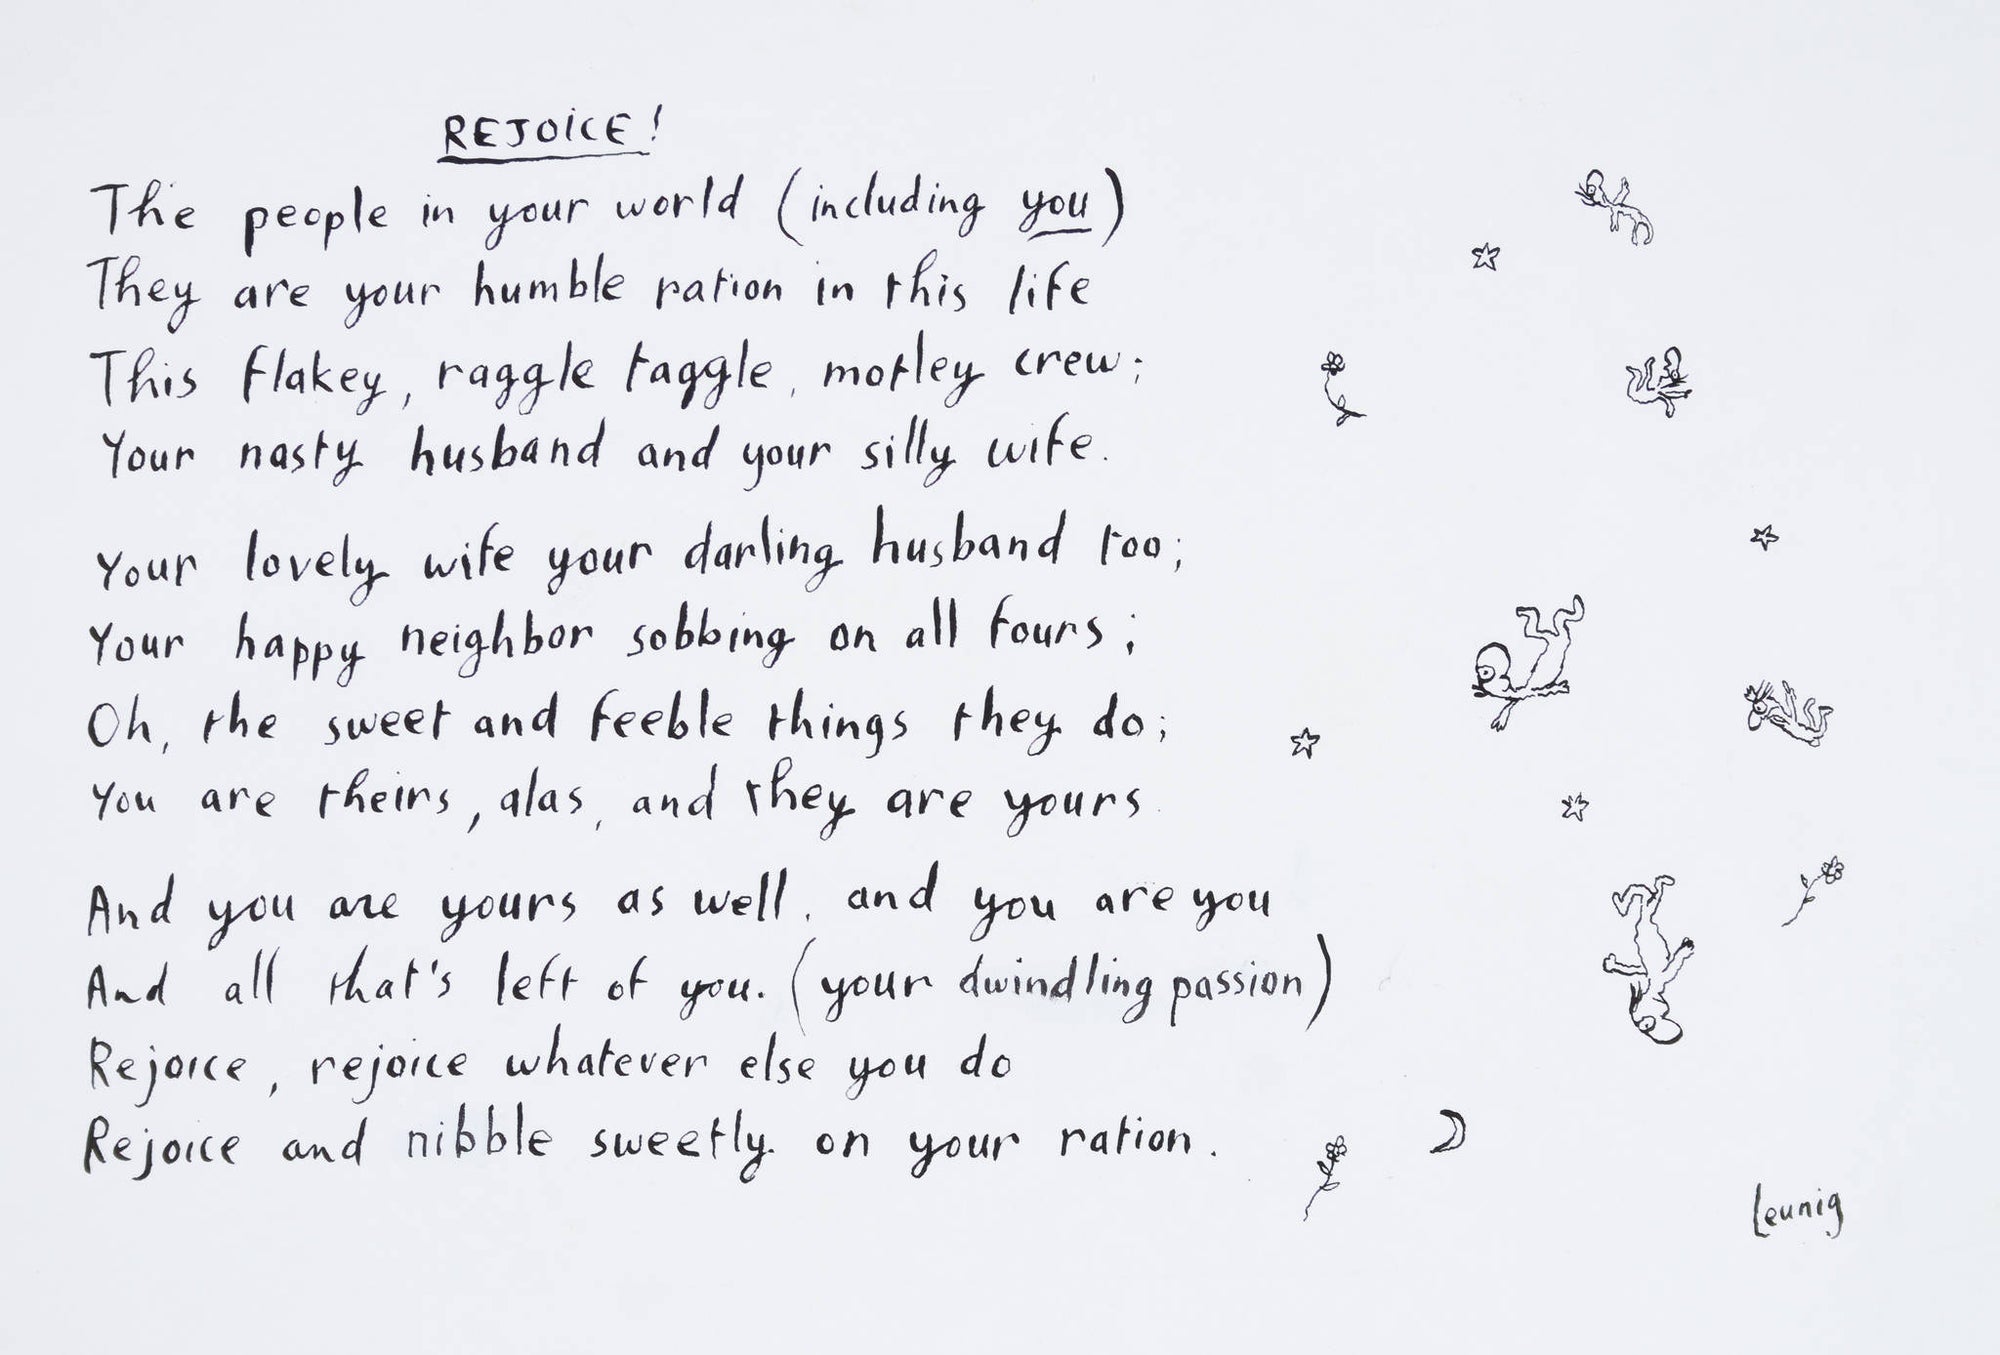 REJOICE!
The people in your world (including you)
They are your humble ration in this life
This flakey, raggle taggle, motley crew;
Your nasty husband and your silly wife.
Your lovely wife your darling husband too;
Your happy neighbor sobbing on all fours;
Oh, the sweet and feeble things they do;
You are theirs, alas, and they are yours.
And you are yours as well, and you are you
And all that's left of you. (your dwindling passion)
Rejoice, rejoice whatever else you do
Rejoice and nibble sweetly on your ration.
Leunig